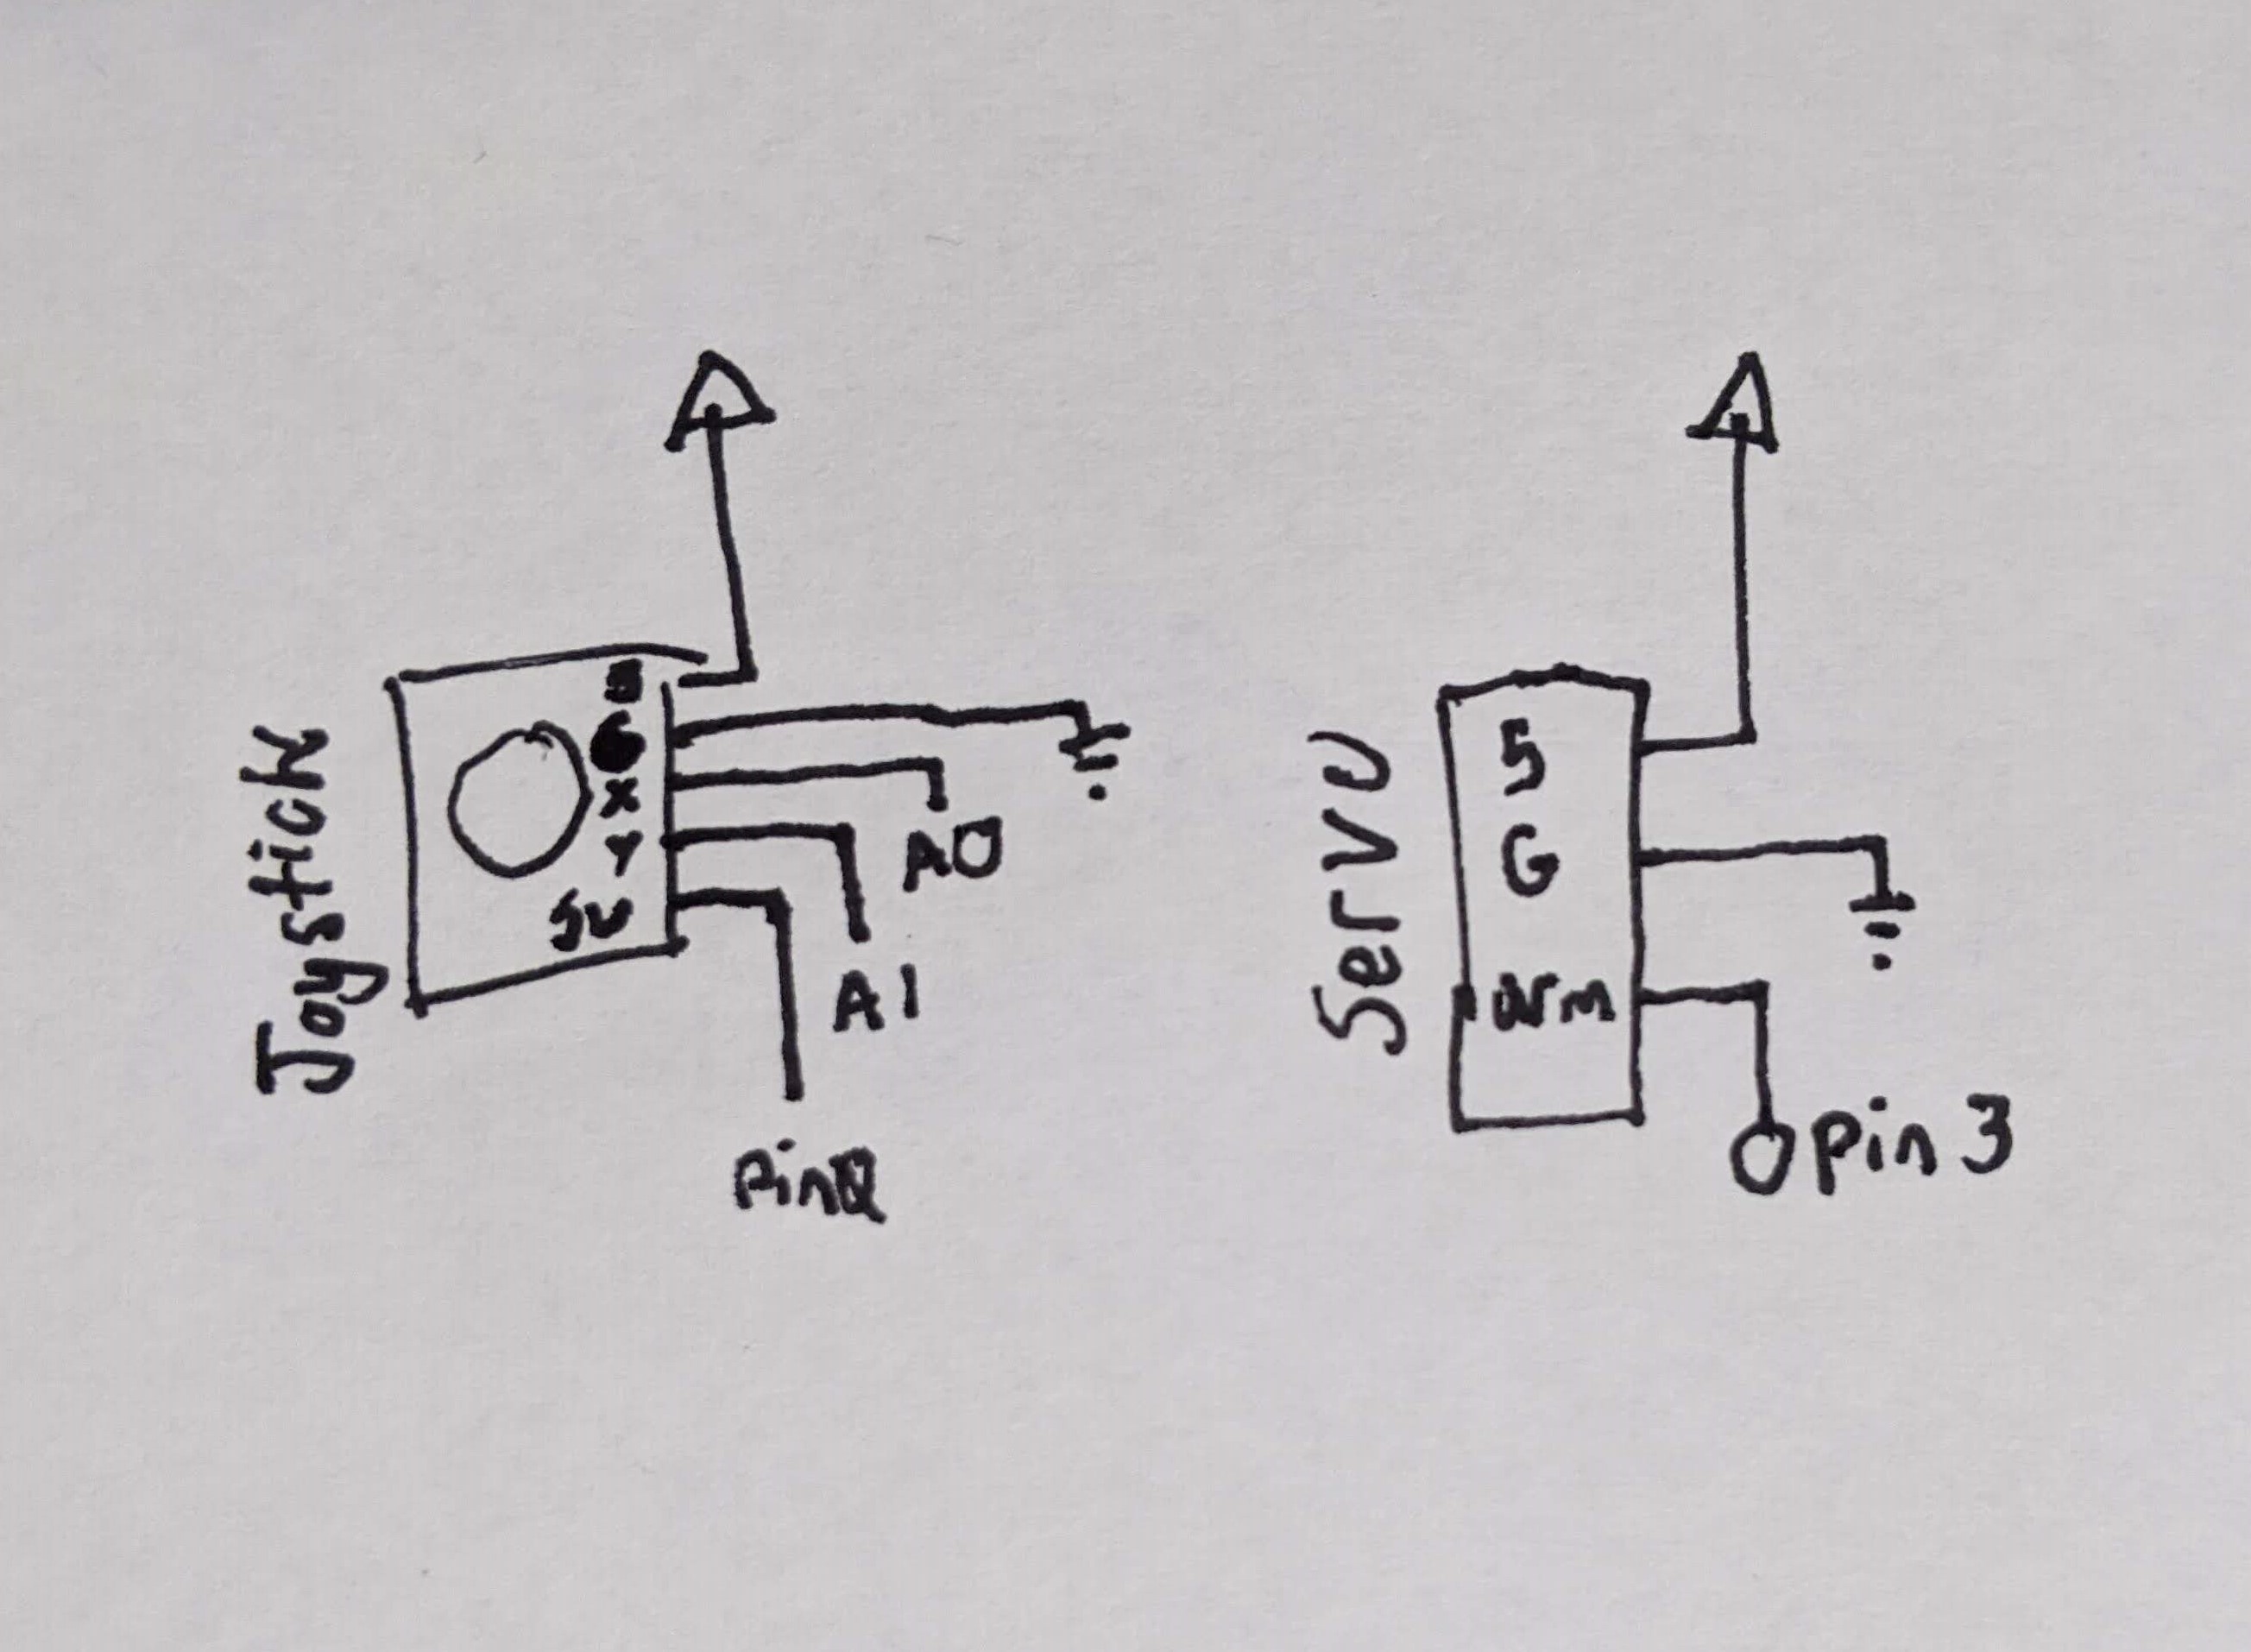 Joystick
G
X
Y
SW
A0
A1
Pin
Servo
5
G
arm
Pin 3